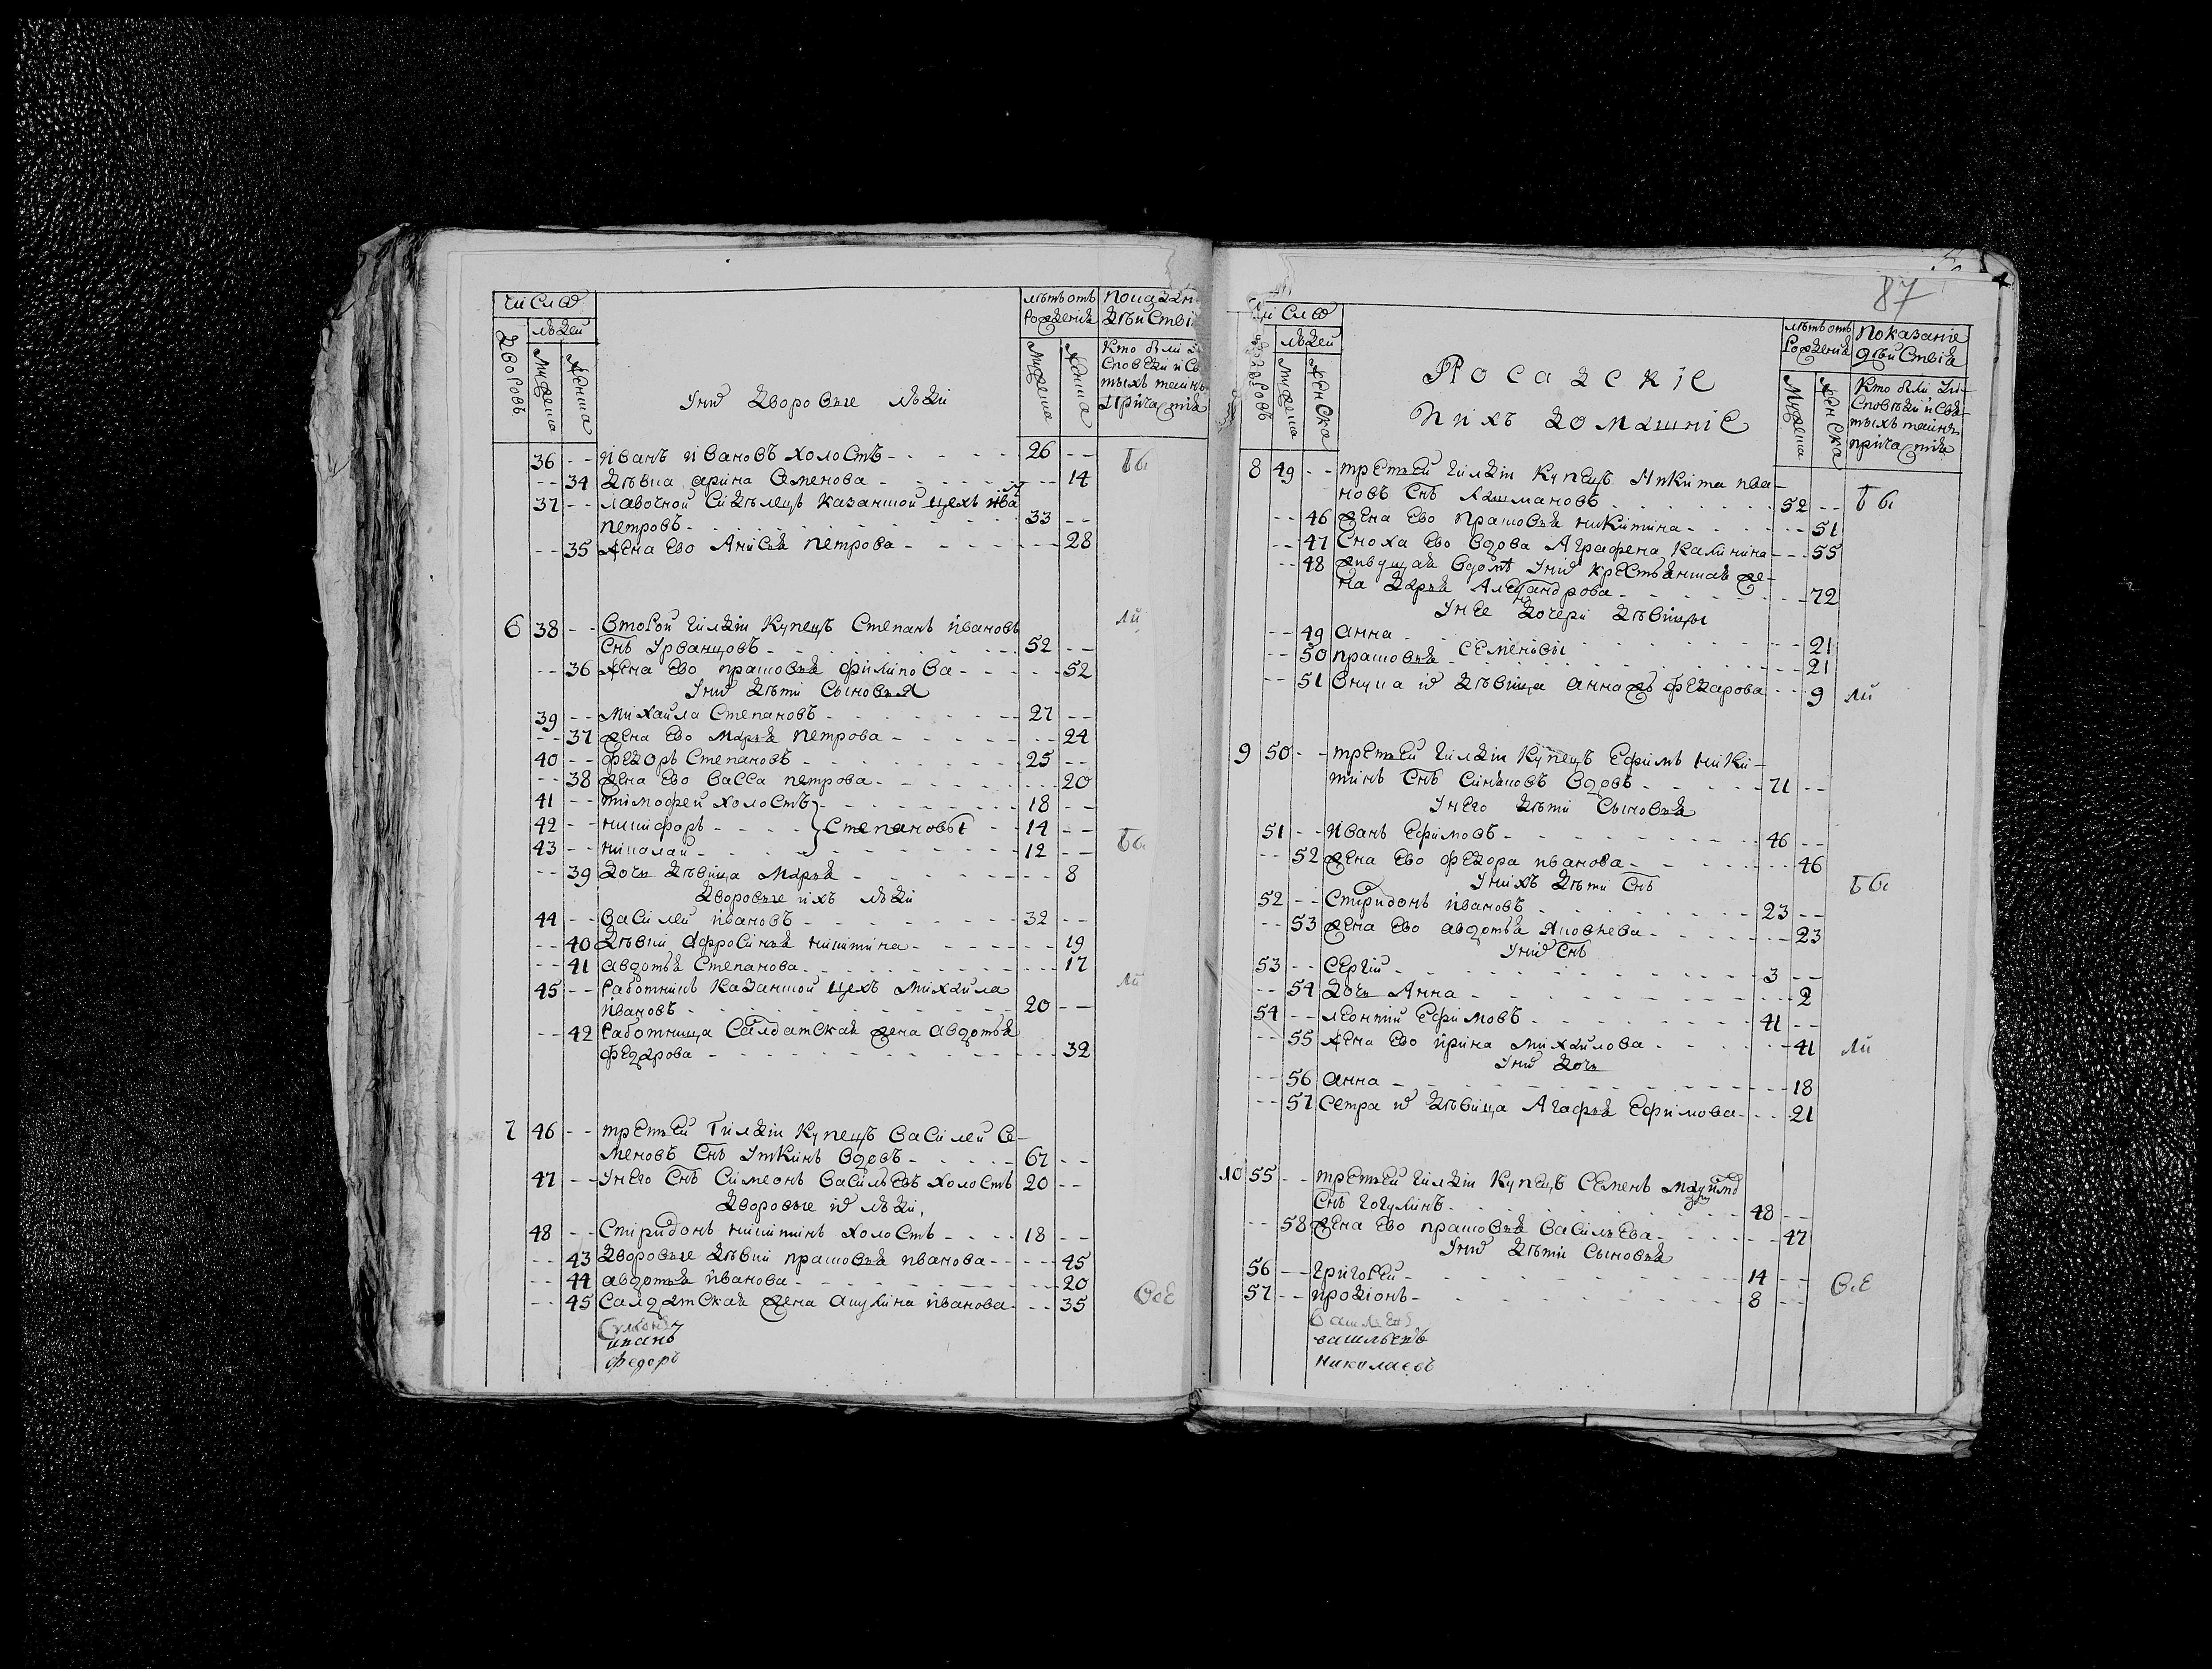 Число
людей
дворовъ
мужеска
женска
лѣтъ отъ
рожденiя
мужеска
женска
показанi
дѣйствi
Кто были
споведи и св
тыхъ таинъ
причастiя
У нихъ дворовые люди
36 -- Иванъ Ивановъ холостъ 26 --
-- 34 дѣвка арина Семенова -- 14
37 -- лавочной сидѣлецъ казанской цехъ ива
петровъ 33 --
-- 35 жена ево Анисья петрова -- 28
Бы
6 38 -- второй гилдiи купецъ Степанъ ивановъ
снъ Урванцовъ 52 --
-- 36 жена ево прасковья филипова -- 52
У них дѣти сыновья
39 -- михайла Степановъ 27 --
-- 37 жена ево марья петрова -- 24
40 -- федоръ Степановъ 25 --
-- 38 жена ево васса петрова -- 20
41 -- тимофей холостъ 18 --
42 -- никифоръ } Степановы 14 --
43 -- николай 12 --
-- 39 дочь дѣвица марья -- 8
дворовые ихъ люди
44 -- василей ивановъ 32 --
-- 40 дѣвки афросинья никитина -- 19
-- 41 авдотья Степанова -- 17
45 -- работникъ казанской цехъ михайла
ивановъ 20 --
-- 42 работница салдатская жена авдотья
федорова -- 32
ли
Бы
ли
7 46 -- третьей гилдiи купецъ василей се-
меновъ снъ Уткинъ вдовъ 67 --
47 -- у него снъ Симеонъ васильевъ холостъ 20 --
дворовые их люди,
48 -- Спиридонъ никитинъ холостъ 18 --
-- 43 дворовые дѣвки прасковья иванова -- 45
-- 44 авдотья иванова -- 20
-- 45 салдатская жена акулина иванова -- 35
все
иванъ
федоръ
87
Число
людей
дворовъ
мужеска
женска
Посадскiе
и ихъ домашнiе
лѣтъ отъ
рожденiя
мужеска
женска
показанiе
дѣйствiя
Кто были и
сповѣди и свя
тыхъ таинъ
причастiя
8 49 -- третьей гилдiи купецъ Никита ива-
новъ снъ Ашмановъ 52 --
-- 46 жена ево прасковья никитина -- 51
-- 47 сноха ево вдова Аграфена калинина -- 55
-- 48 живущая в домѣ у них крестьянская же-
на дарья Александрова -- 72
У нее дочери дѣвицы
-- 49 анна -- 21
Семеновы
-- 50 прасковья -- 21
-- 51 внука их дѣвица анна жъ федарова -- 9
Бы
ли
9 50 -- третьей гилдiи купецъ Ефимъ ники-
тинъ снъ Синяковъ вдовъ 71 --
У него дѣти сыновья
51 -- Иванъ Ефимовъ 46 --
-- 52 жена ево федора иванова -- 46
У нихъ дѣти снъ
52 -- Спиридонъ ивановъ 23 --
-- 53 жена ево авдотья яковлева -- 23
У них снъ
53 -- Сергiй 3 --
-- 54 дочь Анна -- 2
54 -- леонтий Ефимовъ 41 --
-- 55 жена ево ирина михайлова -- 41
У них дочь
-- 56 анна -- 18
-- 57 сетра их дѣвица Агафья Ефимова -- 21
Бы
ли
10 55 -- третьей гилдiи купецъ Семенъ
снъ гогулинъ 48 --
-- 58 жена ево прасковья васильева -- 47
У них дѣти сыновья
56 -- григорей 14 --
57 -- продiонъ 8 --
все
васильевъ
николаевъ